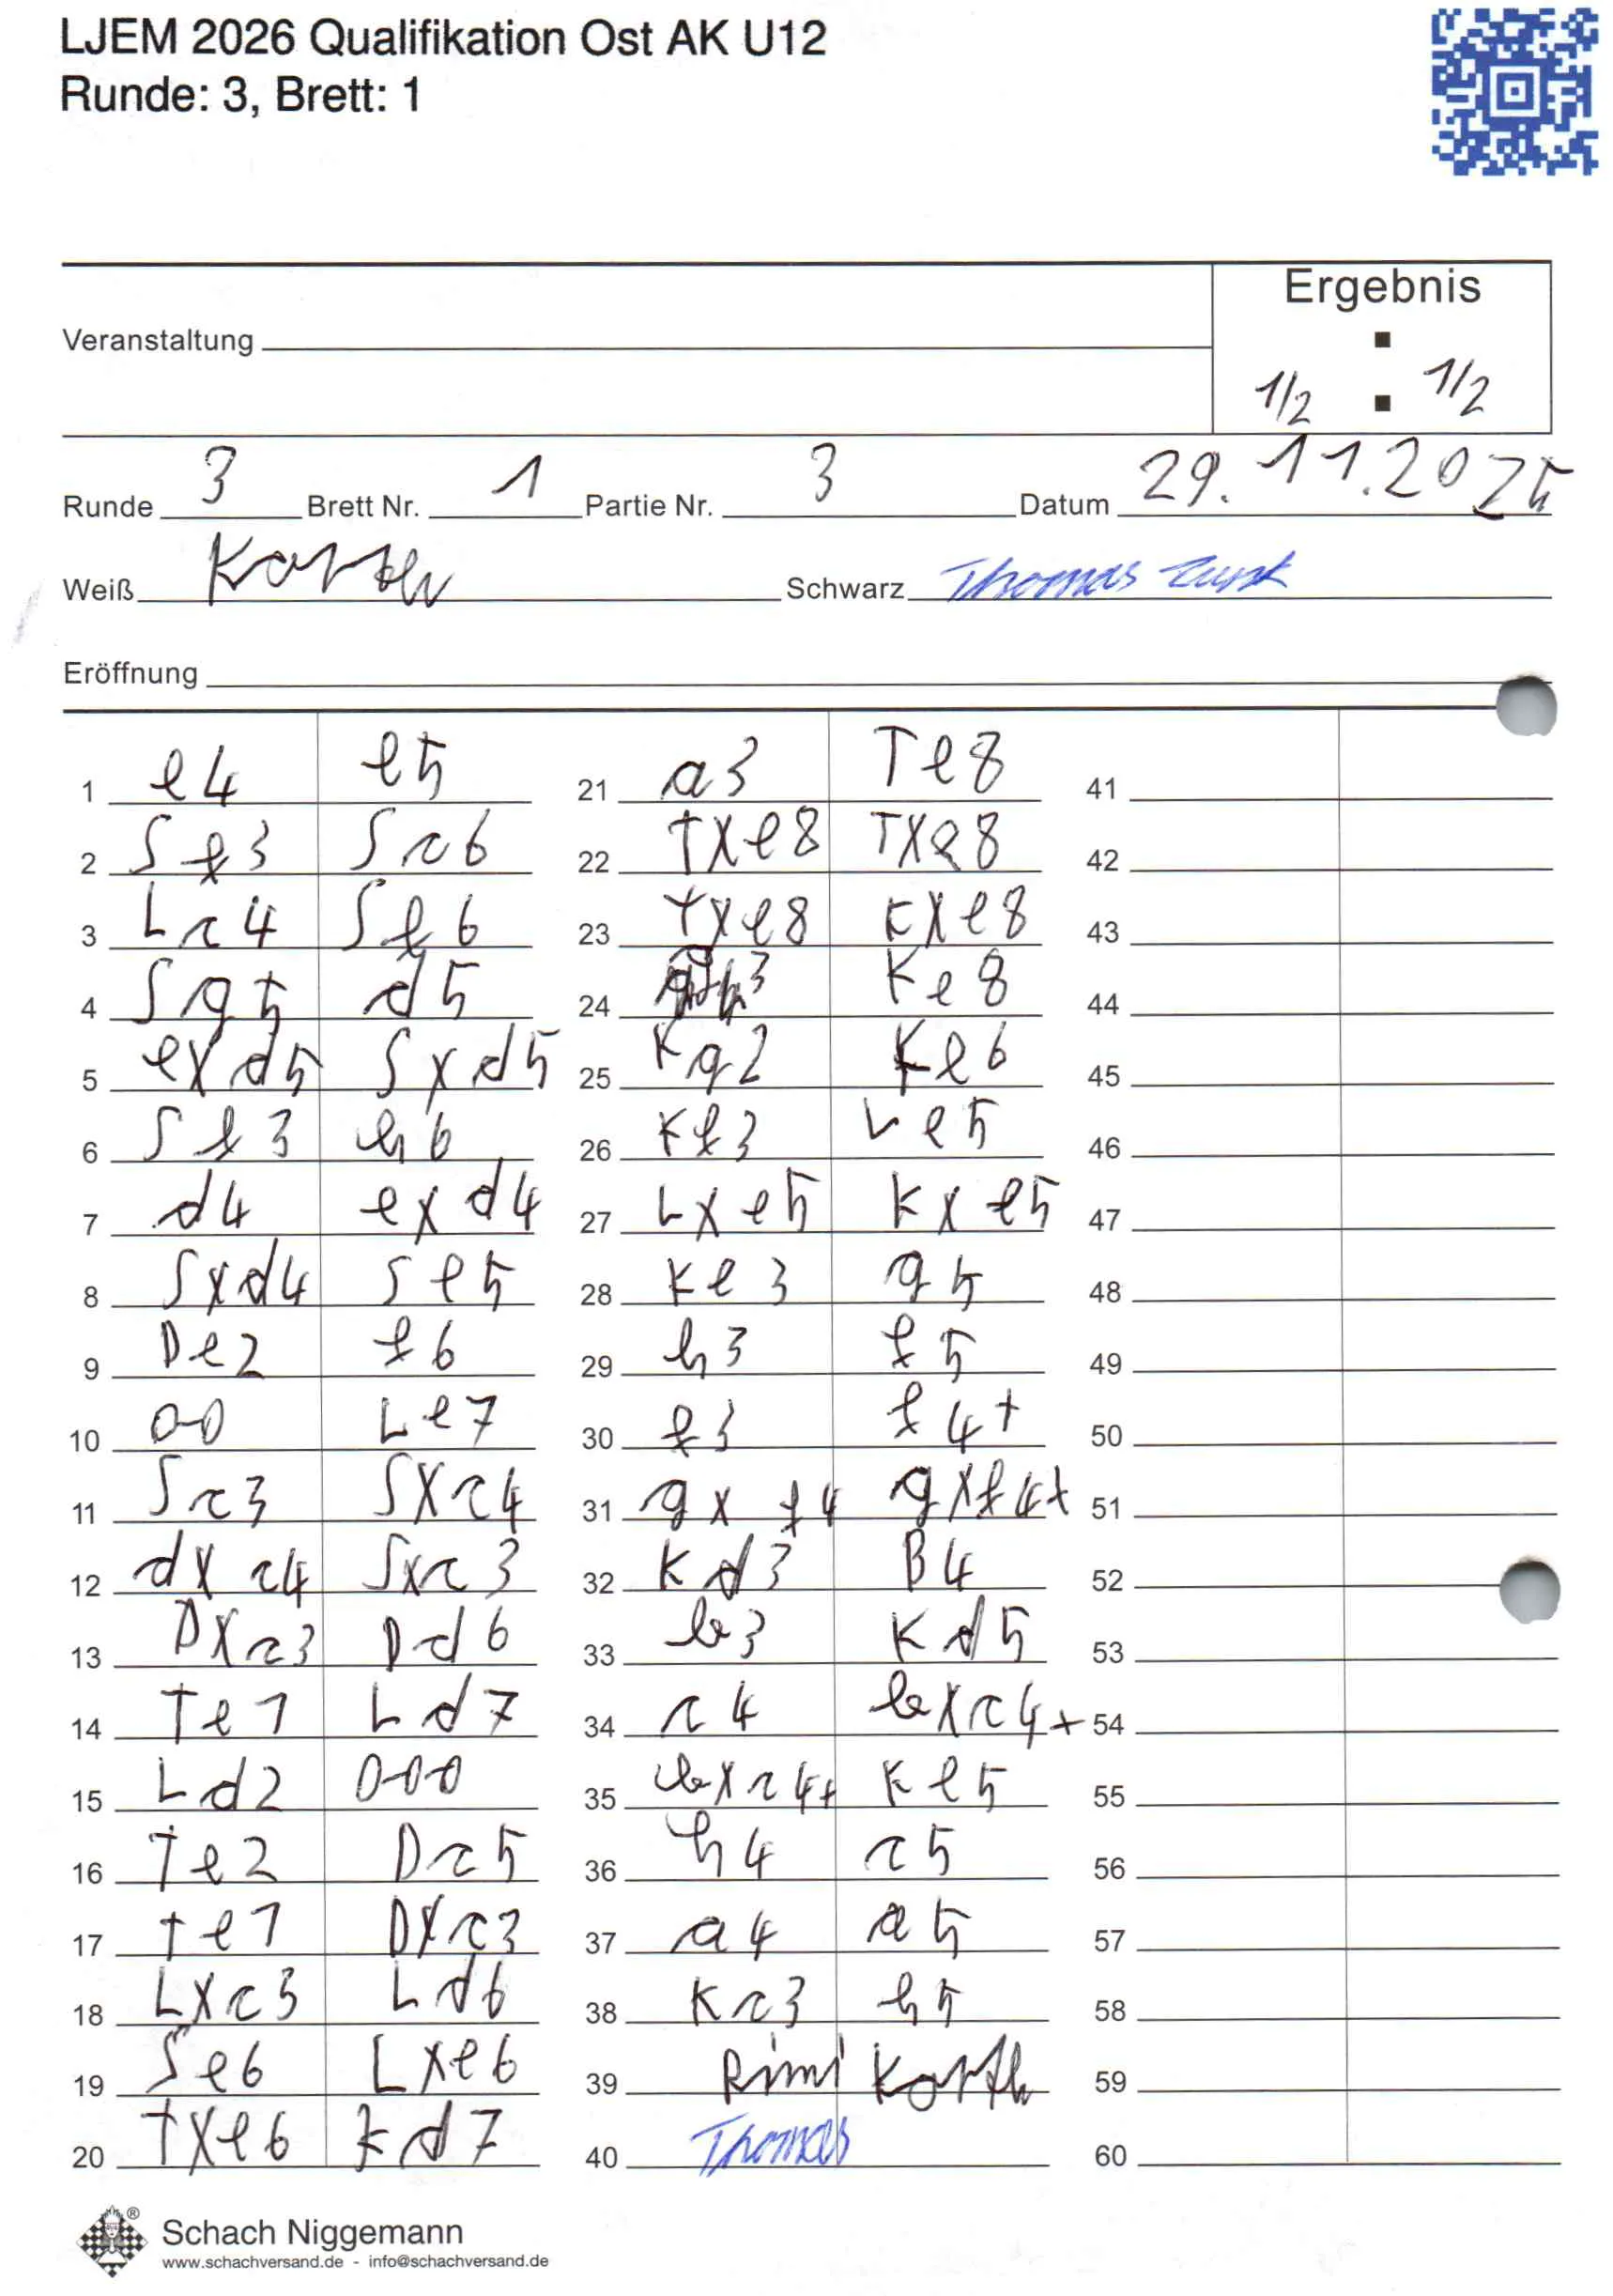 LJEM 2026 Qualifikation Ost AK U12
Runde: 3, Brett: 1
Ergebnis
:
Veranstaltung
1/2 : 1/2
Runde 3 Brett Nr. 1 Partie Nr. 3 Datum 29.11.2025
Weiß Schwarz Thomas
Eröffnung
1 e4 e5 21 a3 Te8 41
2 Sf3 Sc6 22 Txe8 Txe8 42
3 Lc4 Sf6 23 Txe8 Kxe8 43
4 Sg5 d5 24 Ke8 44
5 exd5 Sxd5 25 Kg2 Ke6 45
6 Sf3 h6 26 Kf3 Le5 46
7 d4 exd4 27 Lxe5 Kxe5 47
8 Sxd4 Se5 28 Ke3 g5 48
9 De2 f6 29 h3 f5 49
10 0-0 Le7 30 f3 f4+ 50
11 Sc3 Sxc4 31 gxf4 gxf4+ 51
12 dxc4 Sxc3 32 Kd3 B4 52
13 Dxc3 Dd6 33 b3 Kd5 53
14 Te1 Ld7 34 c4 bxc4+ 54
15 Ld2 0-0-0 35 bxc4+ Ke5 55
16 Te2 Dc5 36 h4 c5 56
17 Te1 Dxc3 37 a4 a5 57
18 Lxc3 Ld6 38 Kc3 h5 58
19 Se6 Lxe6 39 Rimi 59
20 Txe6 Kd7 40 Thomas 60
®
Schach Niggemann
www.schachversand.de - info@schachversand.de